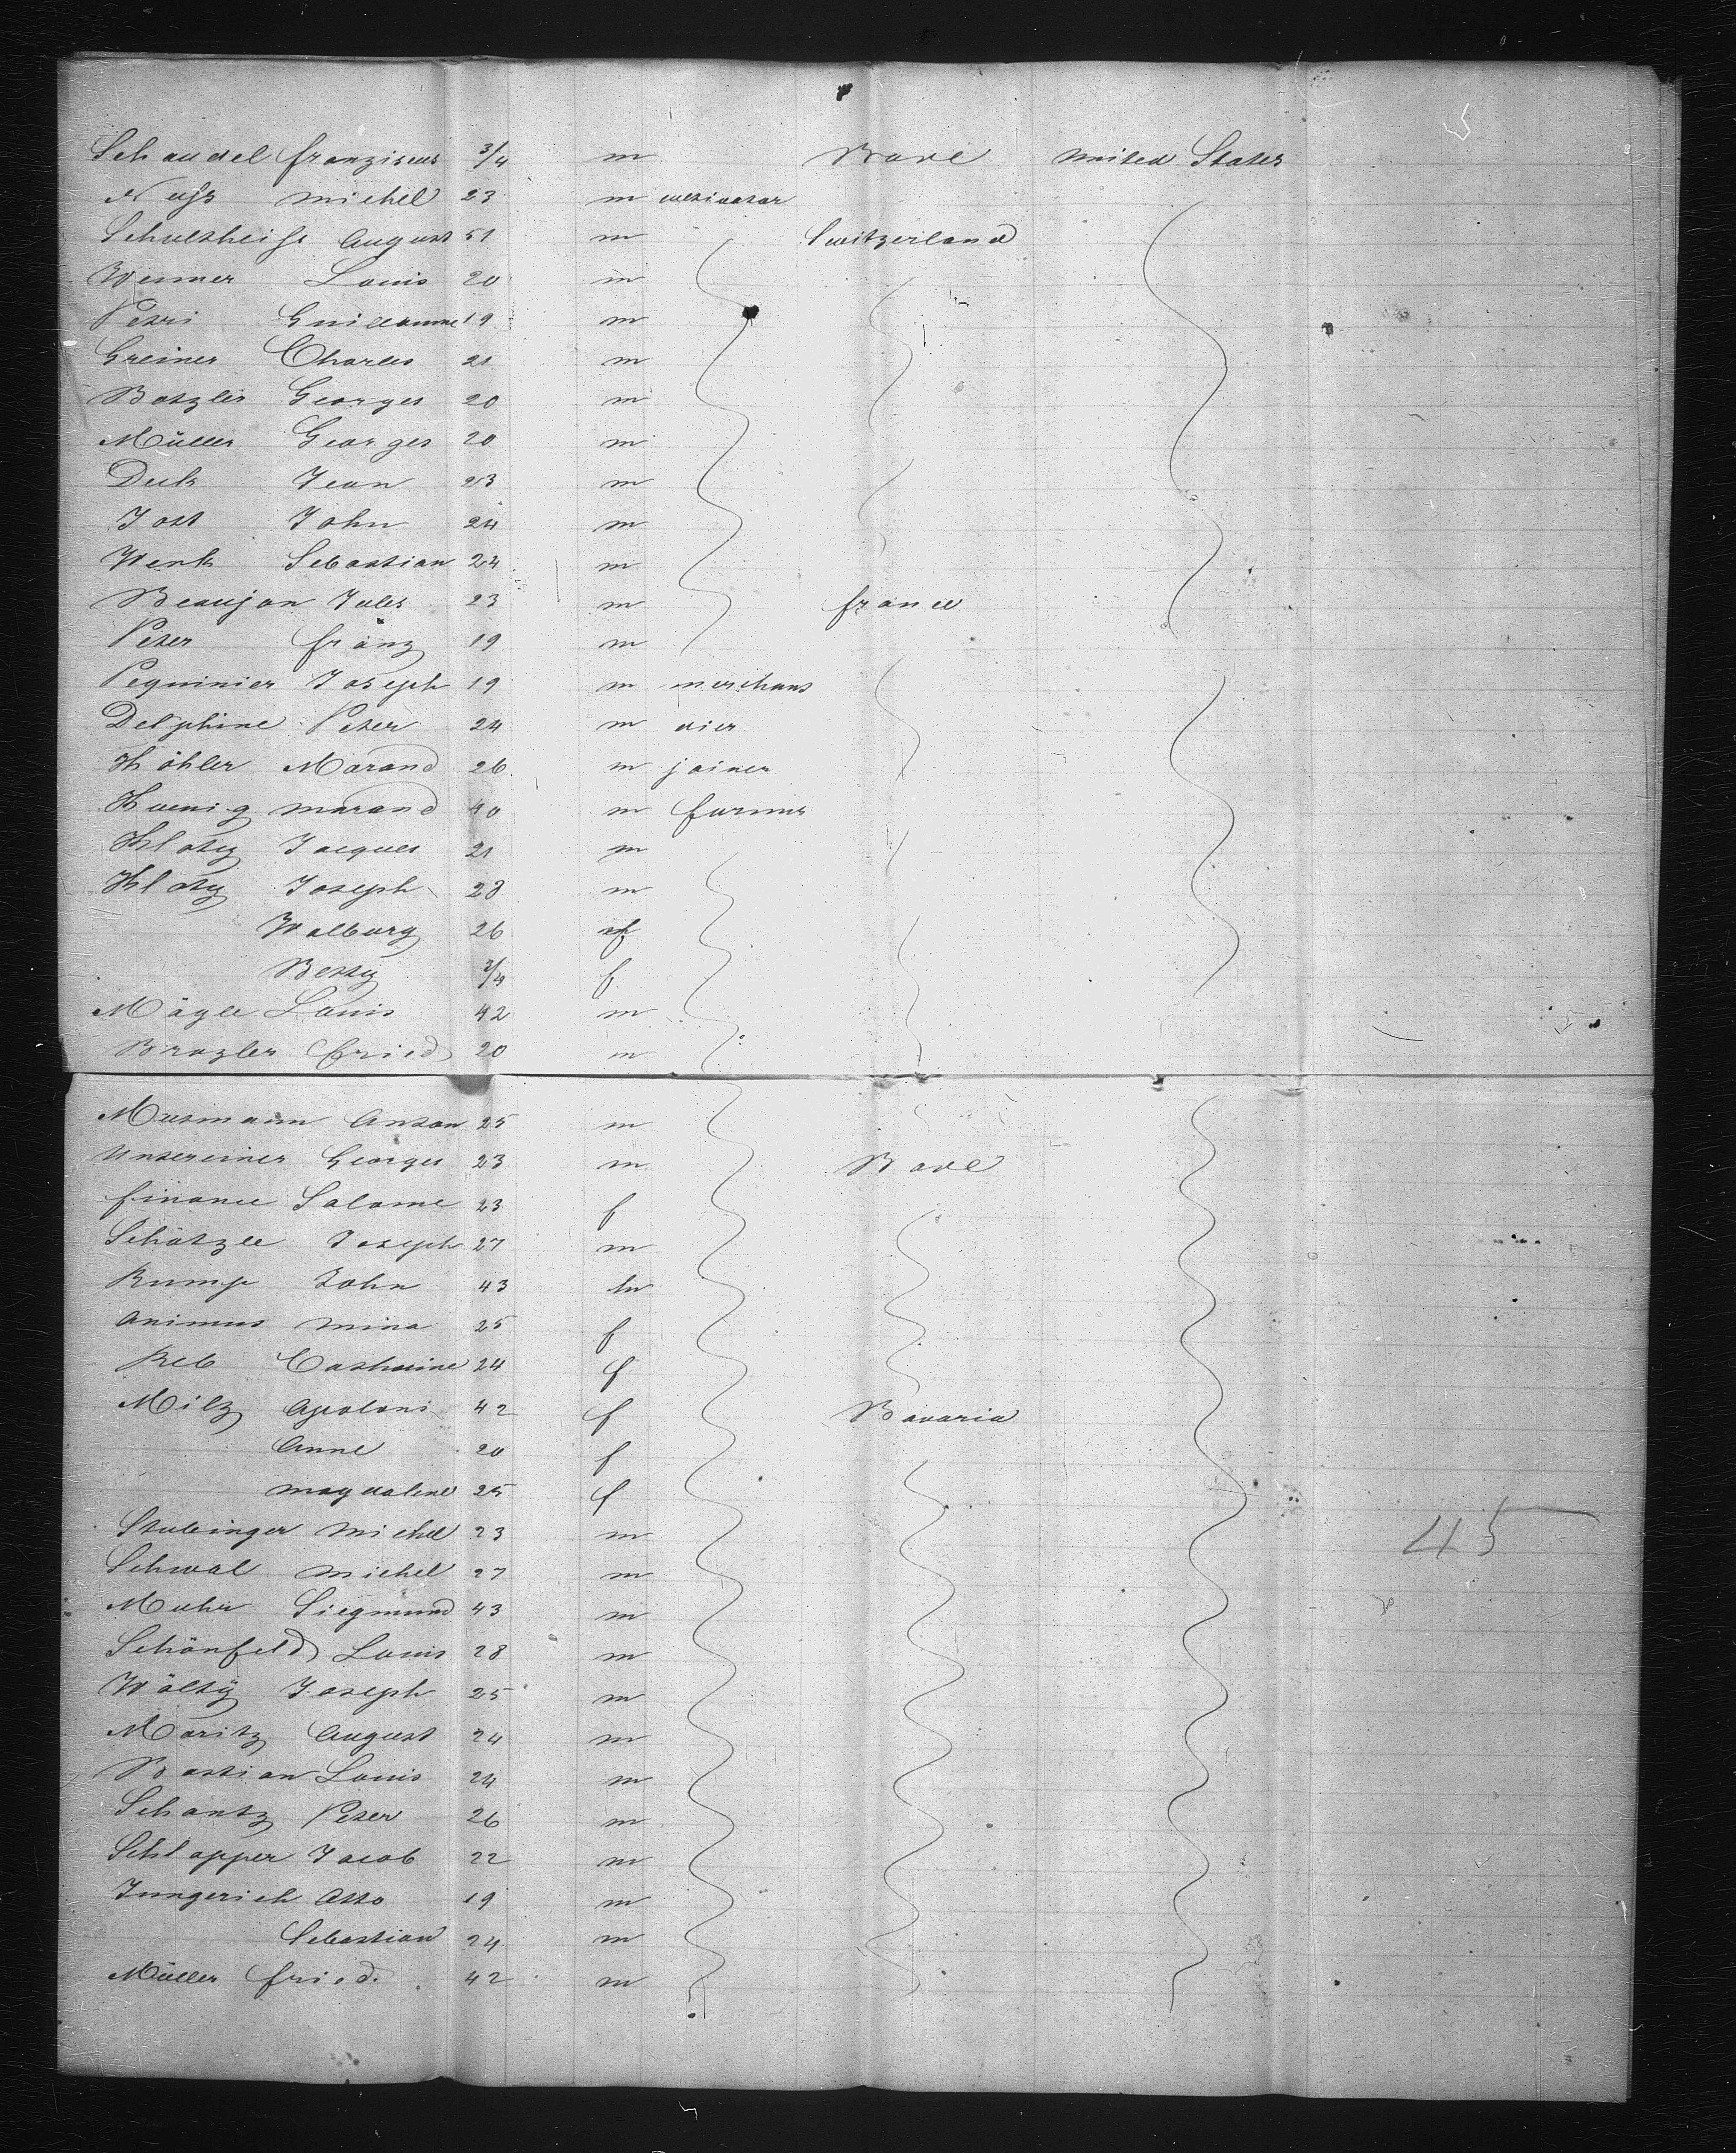 Schaudel franziscus 3/4 m Bade united States
Nuſs michel 23 m cultivator
Schultheiſs August 51 m Switzerland
Wenner Louis 20 m
Petri Guillaume 19 m
Greiner Charles 21 m
Botzler Georges 20 m
Müller Georges 20 m
Duk Jean 23 m
Jost John 24 m
Wenk Sebastian 24 m
Beaujon Jules 23 m france
Peter franz 19 m
Pequinier Joseph 19 m merchant
Delphine Peter 24 m
Köhler Morand 26 m joiner
Huenig morand 40 m farmer
Klotz Jacques 21 m
Klotz Joseph 28 m
Walburg 26 f
Betty /4 f
Mägle Louis 42 m
Brozler fried 20 m
Musmann Anton 25 m
Untereiner Georges 23 m Bade
finance Salome 23 f
Schätzle Joseph 27 m
Rump John 43 m
Animus mina 25 f
Reb Catherine 24 f
Milz Apoloni 42 f Bavaria
Anne 20 f
magdalene 25 f
Stubinger michel 23 m
Schwal michel 27 m
Muhr Siegmund 43 m
Schönfeld Louis 28 m
Wölty Joseph 25 m
Moritz August 24 m
Bastian Louis 24 m
Schantz Peter 26 m
Schlapper Jacob 22 m
Jungerich Otto 19 m
Sebastian 24 m
Müller fried. 42 m
45